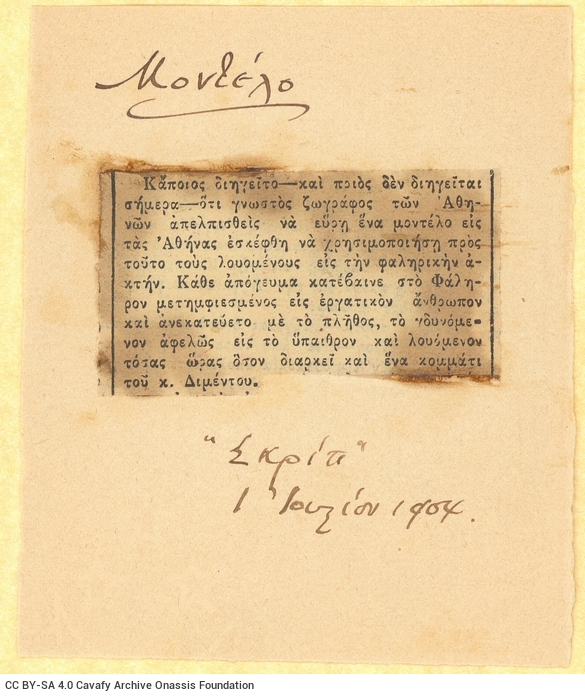 Μοντέλο
Κἄποιος διηγεῖτο—καὶ ποιὸς δὲν διηγεῖται
σήμερα—ὅτι γνωστὸς ζωγράφος τῶν Ἀθη-
νῶν ἀπελπισθεὶς νὰ εὕρῃ ἕνα μοντέλο εἰς
τὰς Ἀθήνας ἐσκέφθη νὰ χρησιμοποιήσῃ πρὸς
τοῦτο τοὺς λουομένους εἰς τὴν φαληρικὴν ἀ-
κτήν. Κάθε ἀπόγευμα κατέβαινε στὸ Φάλη-
ρον μετημφιεσμένος εἰς ἐργατικὸν ἄνθρωπον
καὶ ἀνεκατεύετο μὲ τὸ πλῆθος, τὸ γδυνόμε-
νον ἀφελῶς εἰς τὸ ὕπαιθρον καὶ λουόμενον
τόσας ὥρας ὅσον διαρκεῖ καὶ ἕνα κομμάτι
τοῦ κ. Διμέντου.
"Σκρίπ"
1 Ἰουλίου 1904.
CC BY-SA 4.0 Cavafy Archive Onassis Foundation